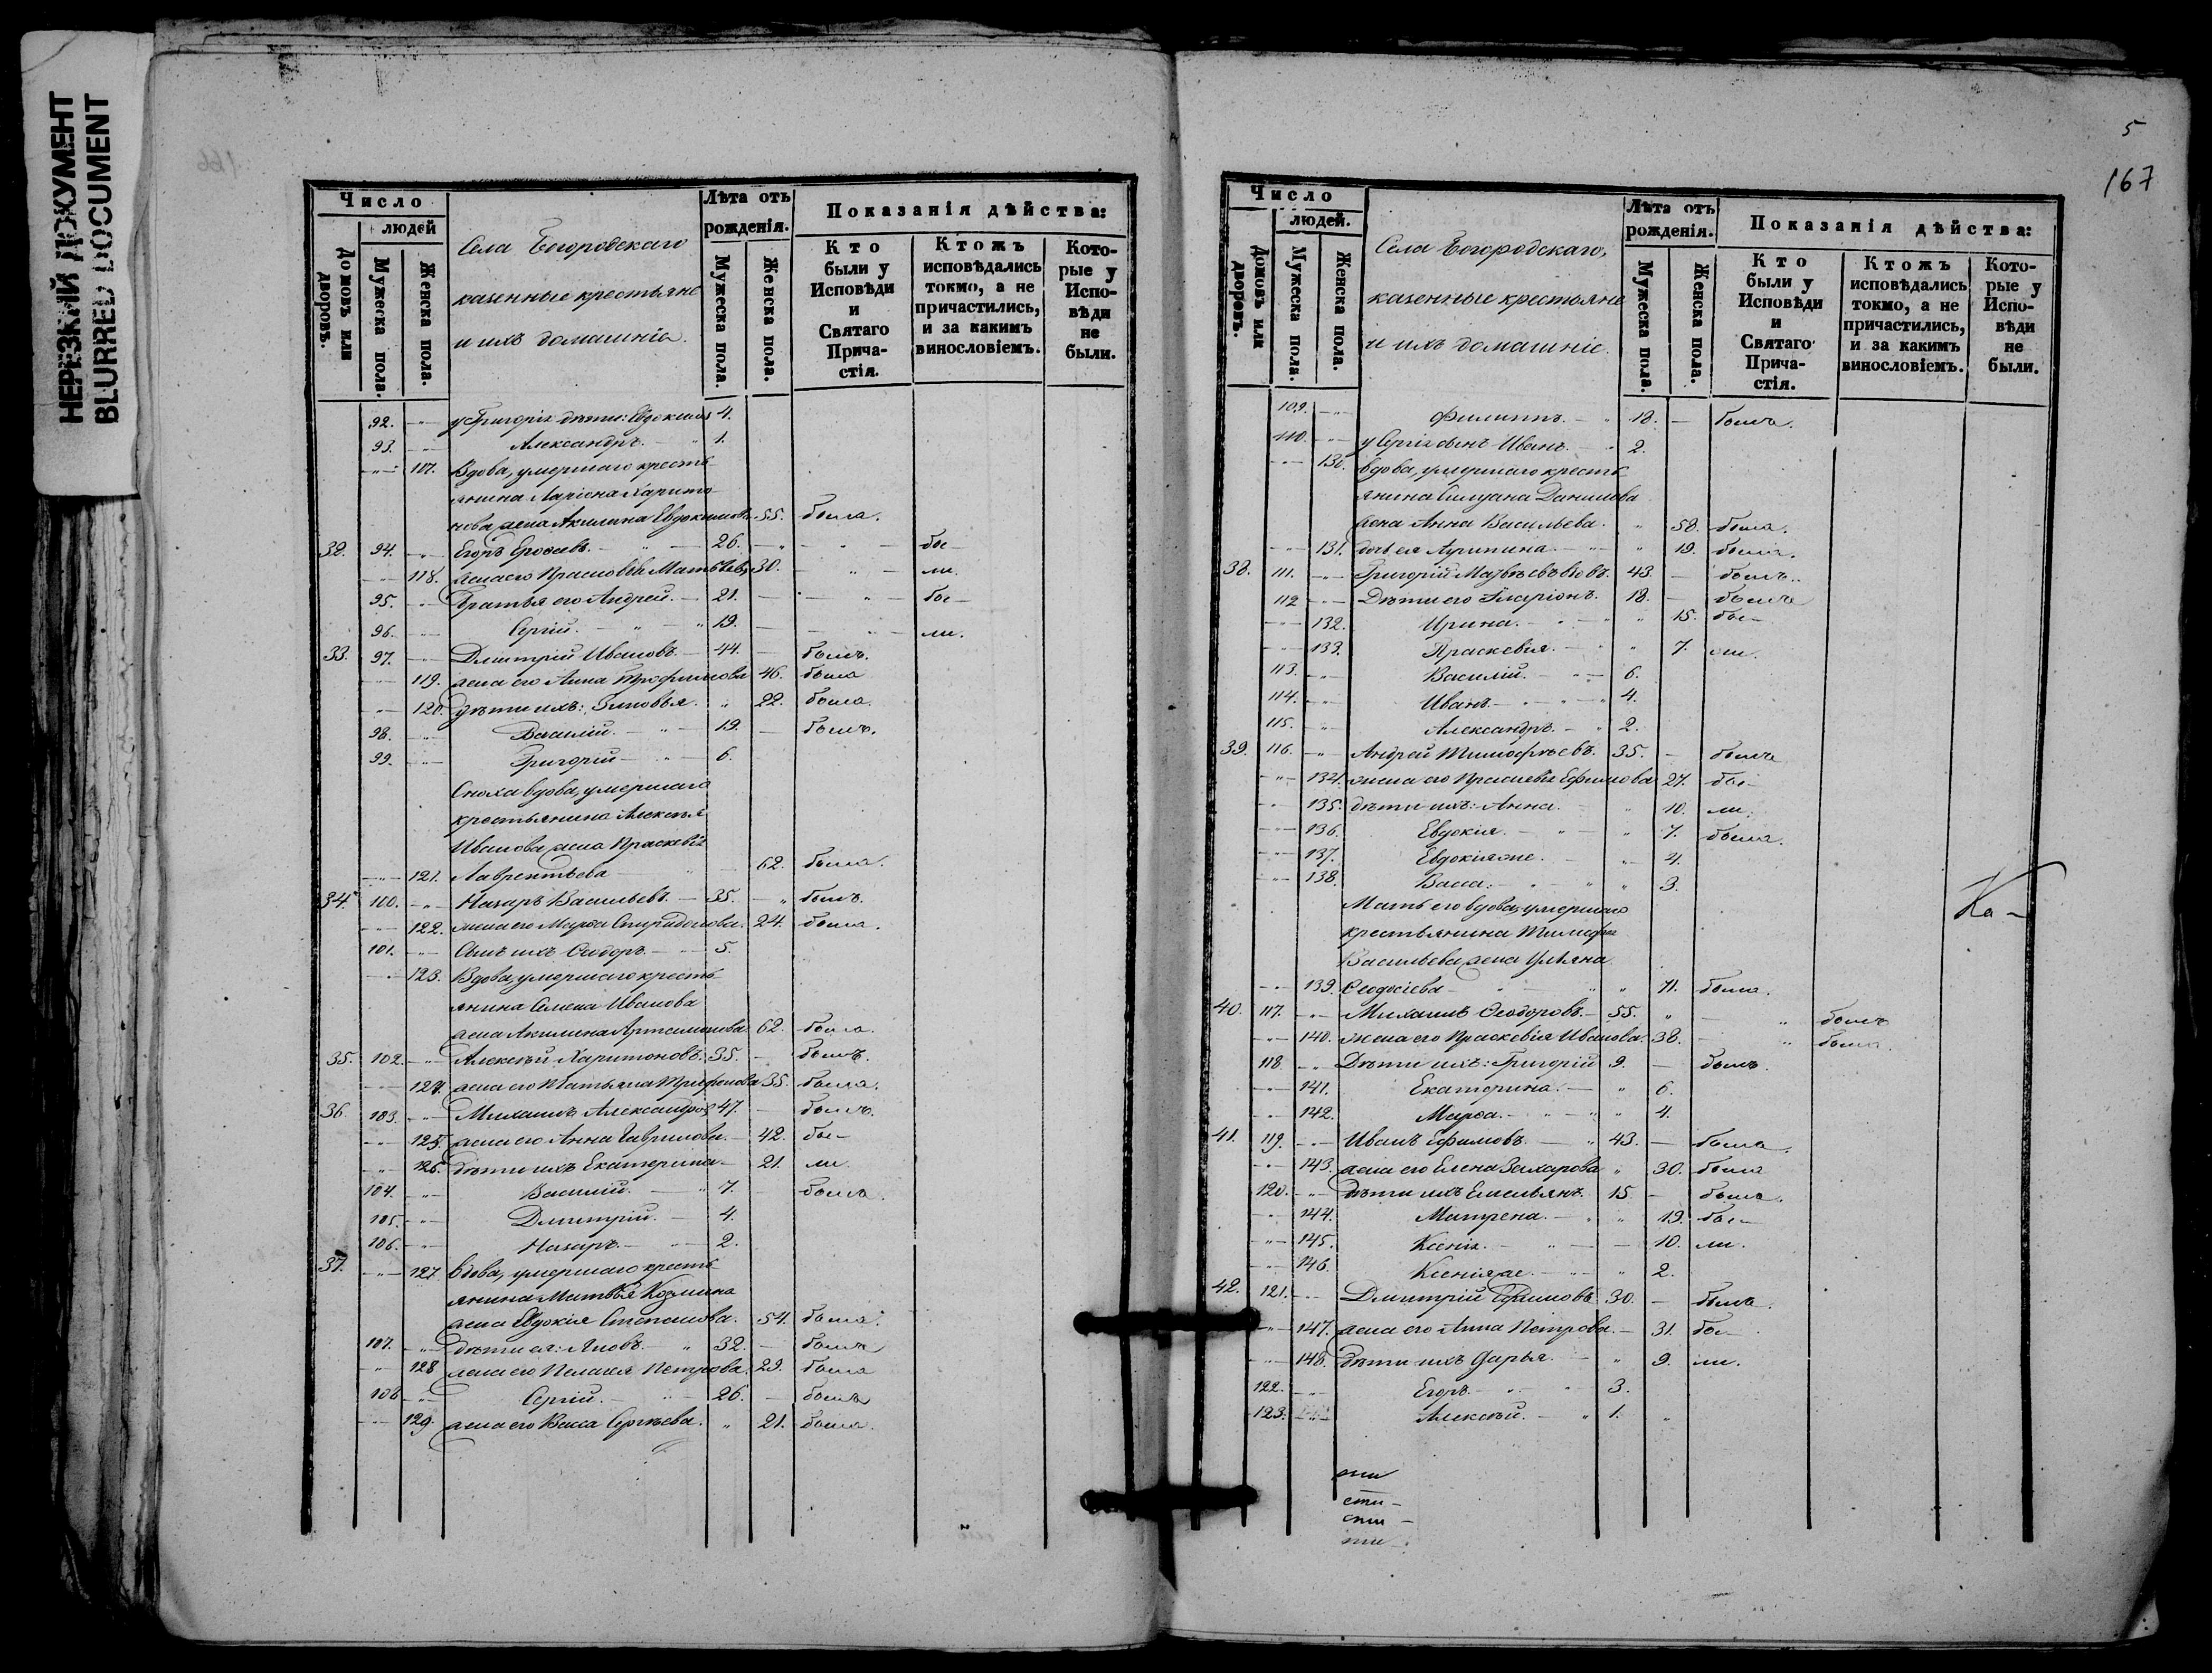 НЕРЕЗКИЙ ДОКУМЕНТ
BLURRED DOCUMENT
Число
людей
Домовъ или дворовъ.
Мужеска пола.
Женска пола.
Села Богородскаго
казенные крестьяне
и ихъ домашнія.
Лѣта отъ рожденія.
Мужеска пола.
Женска пола.
Показанія дѣйства:
Кто были у Исповѣди и Святаго Прича-стія.
Ктожъ исповѣдались токмо, а не причастились, и за какимъ винословіемъ.
Кото-рые у Испо-вѣди не были.
92. у Григорія дѣти: Евдокимъ 4.
93. Александръ. 1.
117. Вдова, умершаго кресть-
янина Ларіона Харито-
нова жена Акилина Евдокимова 55. была.
32. 94. Егоръ Ероѳеевъ. 26. бы-
118. жена его Прасковья Матвѣева 30. ли.
95. Братья его Андрей. 21. бы-
96. Сергій. 19. ли.
33. 97. Дмитрій Ивановъ. 44. былъ.
119. жена его Анна Трофимова 46. была
120. дѣти ихъ: Зиновья. 22. была.
98. Василій. 19. былъ.
99. Григорій 6.
Сноха вдова, умершаго
крестьянина Алексѣя
Иванова жена Праскевія
121. Лаврентьева 62. была.
34. 100. Назаръ Васильевъ. 35. былъ.
122. жена его Марѳа Спиридонова. 24. была.
101. Сынъ ихъ Ѳедоръ. 5.
123. Вдова, умершаго кресть-
янина Семена Иванова
жена Акилина Артамонова 62. была.
35. 102. Алексѣй Харитоновъ. 35. былъ.
124. жена его Татьяна Трифонова 35. была.
36. 103. Михаилъ Александровъ 47. былъ.
125. жена его Анна Гаврилова. 42. бы-
126. дѣти ихъ Екатерина 21. ли.
104. Василій. 7. была.
105. Дмитрій. 4.
106. Назаръ. 2.
37. 127. Вдова, умершаго кресть-
янина Матвѣя Козмина
жена Евдокія Степанова. 54. была.
107. дѣти ея: Яковъ. 32. былъ
128. жена его Пелагея Петрова. 29. была
108. Сергій. 26. былъ
129. жена его Васса Сергѣева. 21. была.
5
167
Число
людей.
Домовъ или дворовъ.
Мужеска пола.
Женска пола.
Села Богородскаго,
казенные крестьяне
и ихъ домашніе.
Лѣта отъ рожденія.
Мужеска пола.
Женска пола.
Показанія дѣйства:
Кто были у Исповѣди и Святаго Прича-стія.
Ктожъ исповѣдались токмо, а не причастились, и за какимъ винословіемъ.
Кото-рые у Испо-вѣди не были.
109. Филиппъ. 18. былъ.
110. у Сергія сынъ Иванъ. 2.
130. вдова, умершаго кресть-
янина Силуана Данилова
жена Анна Васильева. 58. была.
131. дочь ея Agрипина. 19. была.
38. 111. Григорій 43. былъ.
112 Дѣти его Иларіонъ. 18. былъ
132. Ирина. 15. бы-
133. Праскевія. 7. ли.
113. Василій. 6.
114. Иванъ. 4.
115. Александръ. 2.
39. 116. Андрей Тимофѣевъ. 35. былъ
134. жена его Праскевія Ефимова 27. бы-
135. дѣти ихъ: Анна. 10. ли.
136. Евдокія. 7. была.
137. Евдокія же. 4.
138. Васса. 3.
Мать его вдова, умершаго
крестьянина Тимофея
Васильева жена Ульяна
139. Ѳеодосіева 71. была.
40. 117. Михаилъ Ѳеодоровъ. 55. былъ
140. жена его Праскевія Иванова. 38. была.
118. Дѣти ихъ: Григорій 9. былъ.
141. Екатерина. 6.
142. Марѳа. 4.
41. 119. Иванъ Ефимовъ. 43. былъ.
143. жена его Елена Захарова 30. была
120. дѣти ихъ Емельянъ. 15. былъ.
144. Матрена. 19. бы-
145. Ксенія. 10. ли.
146. Ксенія же. 2.
42. 121. Дмитрій Ефимовъ 30. былъ.
147. жена его Анна Петрова. 31. бы-
148. дѣти ихъ Дарья. 9. ли.
122. Егоръ. 3.
123. Алексѣй. 1.
Ка-